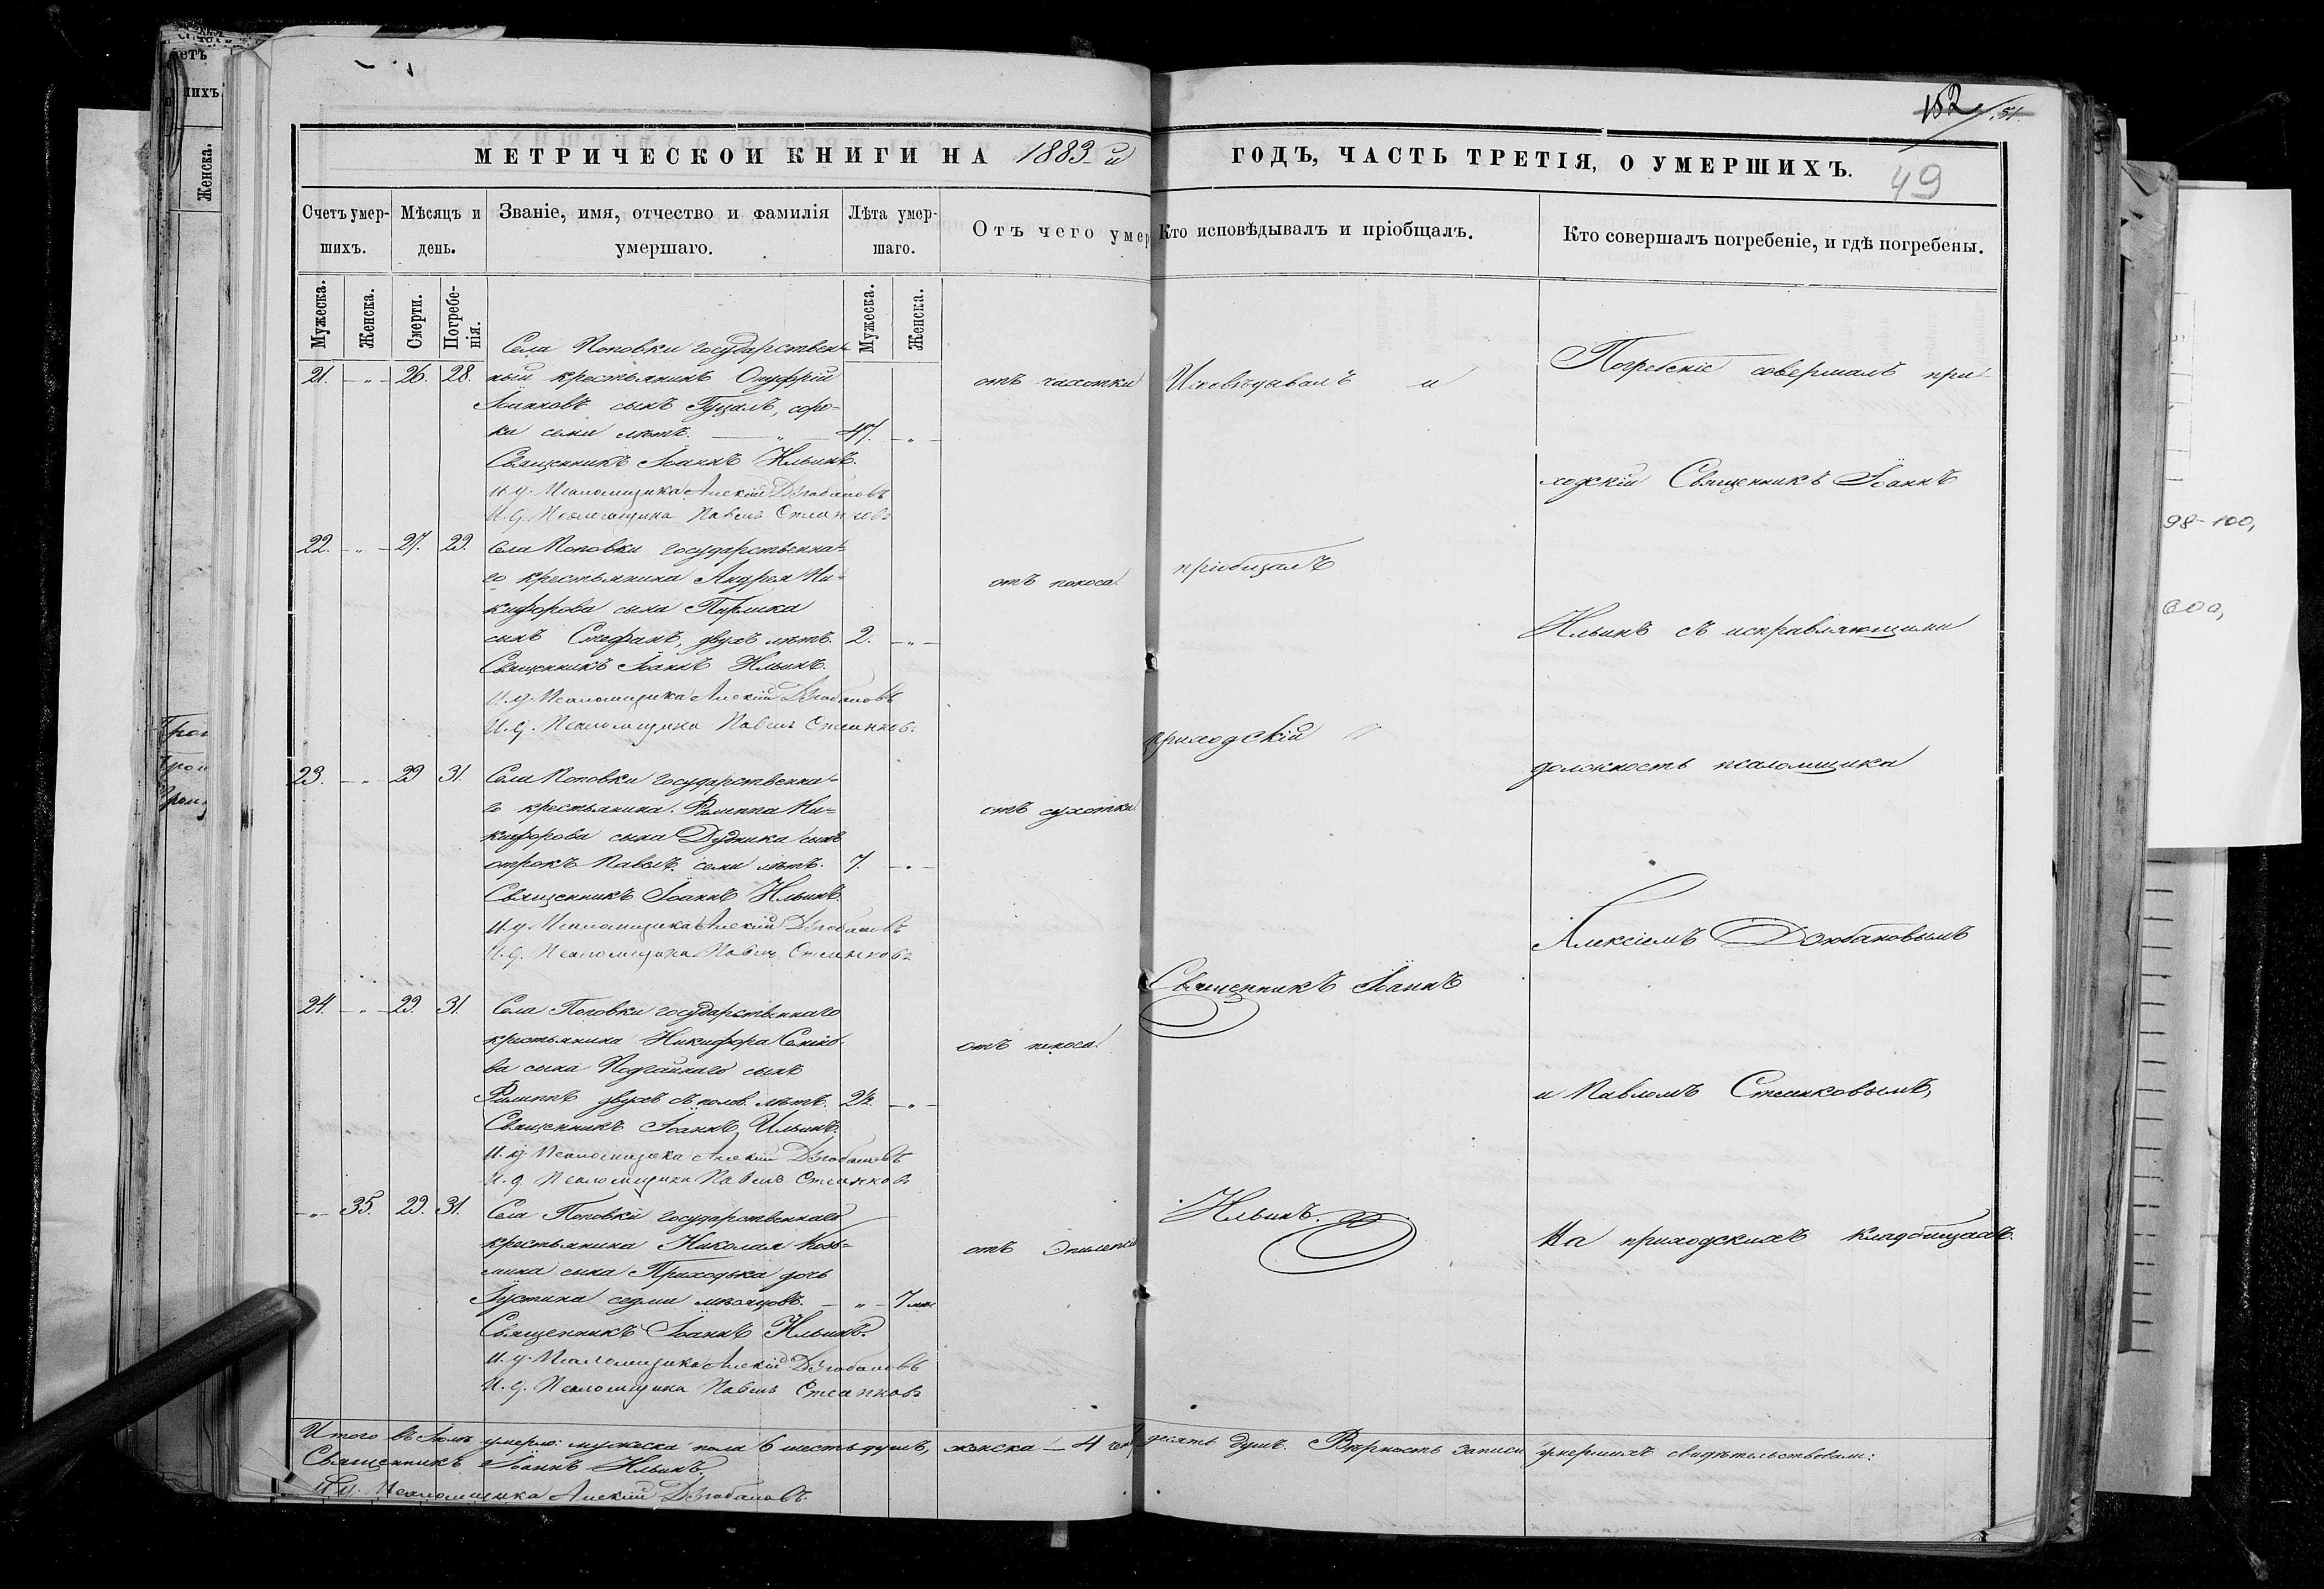 МЕТРИЧЕСКОЙ КНИГИ НА 1883 й
Счетъ умер-
шихъ.
Мѣсяцъ и
день.
Званіе, имя, отчество и фамилія
умершаго.
Лѣта умер-
шаго.
Отъ чего умер
Мужеска.
Женска.
Смерти.
Погребе-
нія.
Мужеска.
Женска.
Села Поповки государствен-
21. - „ - 26. 28. ный крестьянинъ Онуфрій отъ чахотки
Іоанновъ сынъ Гуцалъ, соро-
ка семи лѣтъ. — „ — 47. - „ -
Священникъ Іоаннъ Ильинъ.
И. д. Псаломщика Алексій Дзюбановъ
И. д. Псаломщика Павелъ
22. - „ - 27. 29. Села Поповки государственна-
го крестьянина Андрея Ни- отъ поноса.
кифорова сына
сынъ Стефанъ, двухъ лѣтъ. 2. - „ -
Священникъ Іоаннъ Ильинъ.
И. д. Псаломщика Алексій Дзюбановъ
И. д. Псаломщика Павелъ
23. - „ - 29 31. Села Поповки государственна-
го крестьянина Филиппа Ни- отъ сухотки.
кифорова сына Дудника сынъ
отрокъ Павелъ, семи лѣтъ. 7. - „ -
Священникъ Іоаннъ Ильинъ.
И. д. Псаломщика Алексій Дзюбановъ
И. д. Псаломщика Павелъ
24. - „ - 29. 31. Села Поповки государственнаго
крестьянина Никифора отъ поноса.
ва сына сынъ
Филиппъ двухъ съ полов. лѣтъ. 2½. - „ -
Священникъ Іоаннъ Ильинъ.
И. д. Псаломщика Алексій Дзюбановъ
И. д. Псаломщика Павелъ
- „ - 35. 29. 31. Села Поповки государственнаго
крестьянина Николая Козь- отъ эпилепсіи
мина сына Приходька дочь
Іустина седми мѣсяцовъ. - „ - 7 мѣс.
Священникъ Іоаннъ Ильинъ.
И. д. Псаломщика Алексій Дзюбановъ
И. д. Псаломщика Павелъ
Итого въ умерло: мужеска пола 6 шесть душъ, женска — 4
Священникъ Іоаннъ Ильинъ.
И. д. Псаломщика Алексій Дзюбановъ.
152
49
ГОДЪ, ЧАСТЬ ТРЕТІЯ, О УМЕРШИХЪ.
Кто исповѣдывалъ и пріобщалъ.
Кто совершалъ погребеніе, и гдѣ погребены.
Исповѣдывалъ и
пріобщалъ
приходскій
Священникъ Іоаннъ
Ильинъ.
Погребеніе совершалъ при-
ходскій Священникъ Іоаннъ
Ильинъ съ исправляющими
должность псаломщика
Алексіемъ Дзюбановымъ
и Павломъ
На приходскихъ кладбищахъ.
десять душъ. Вѣрность записи умершихъ свидѣтельствовали:
98-100,
600,